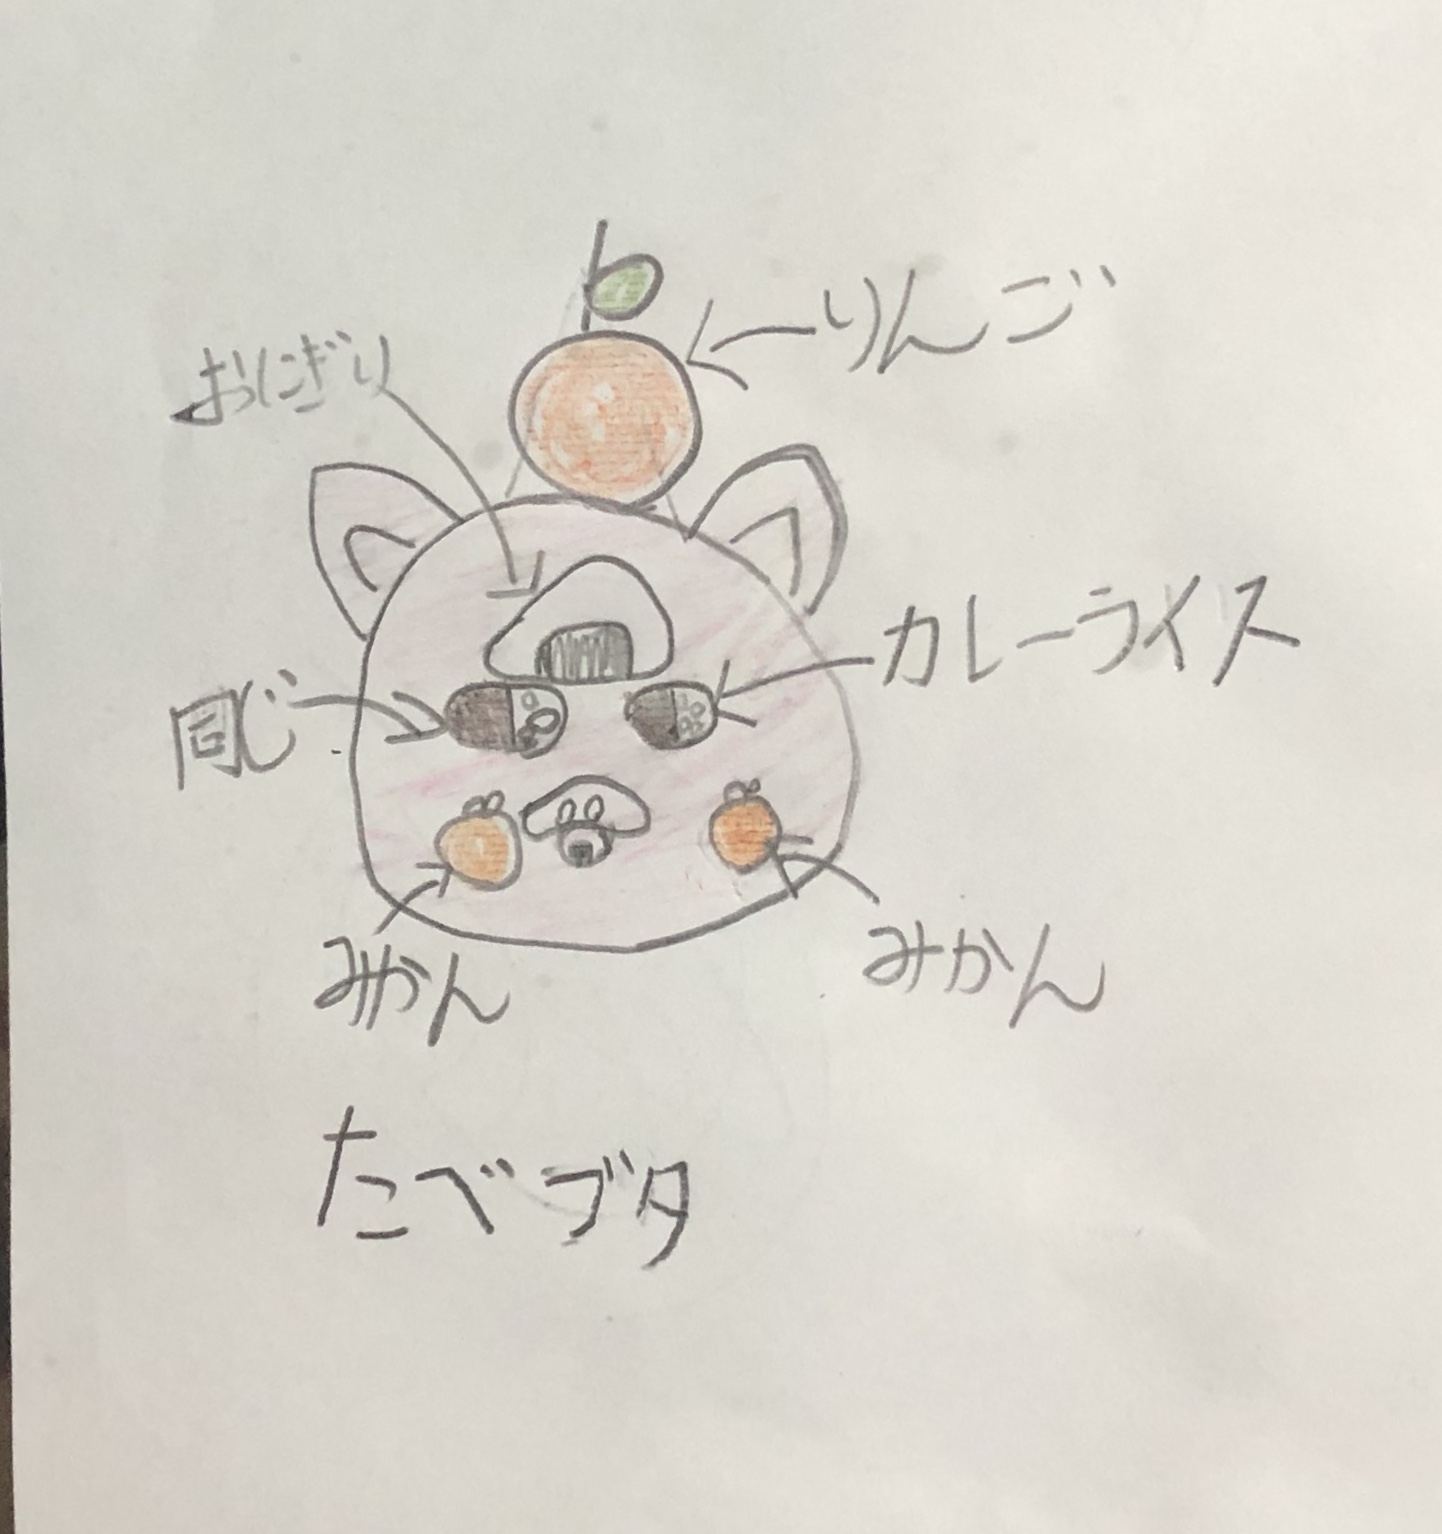 りんご
おにぎり
カレーライス
同じ
みかん
みかん
たべブタ